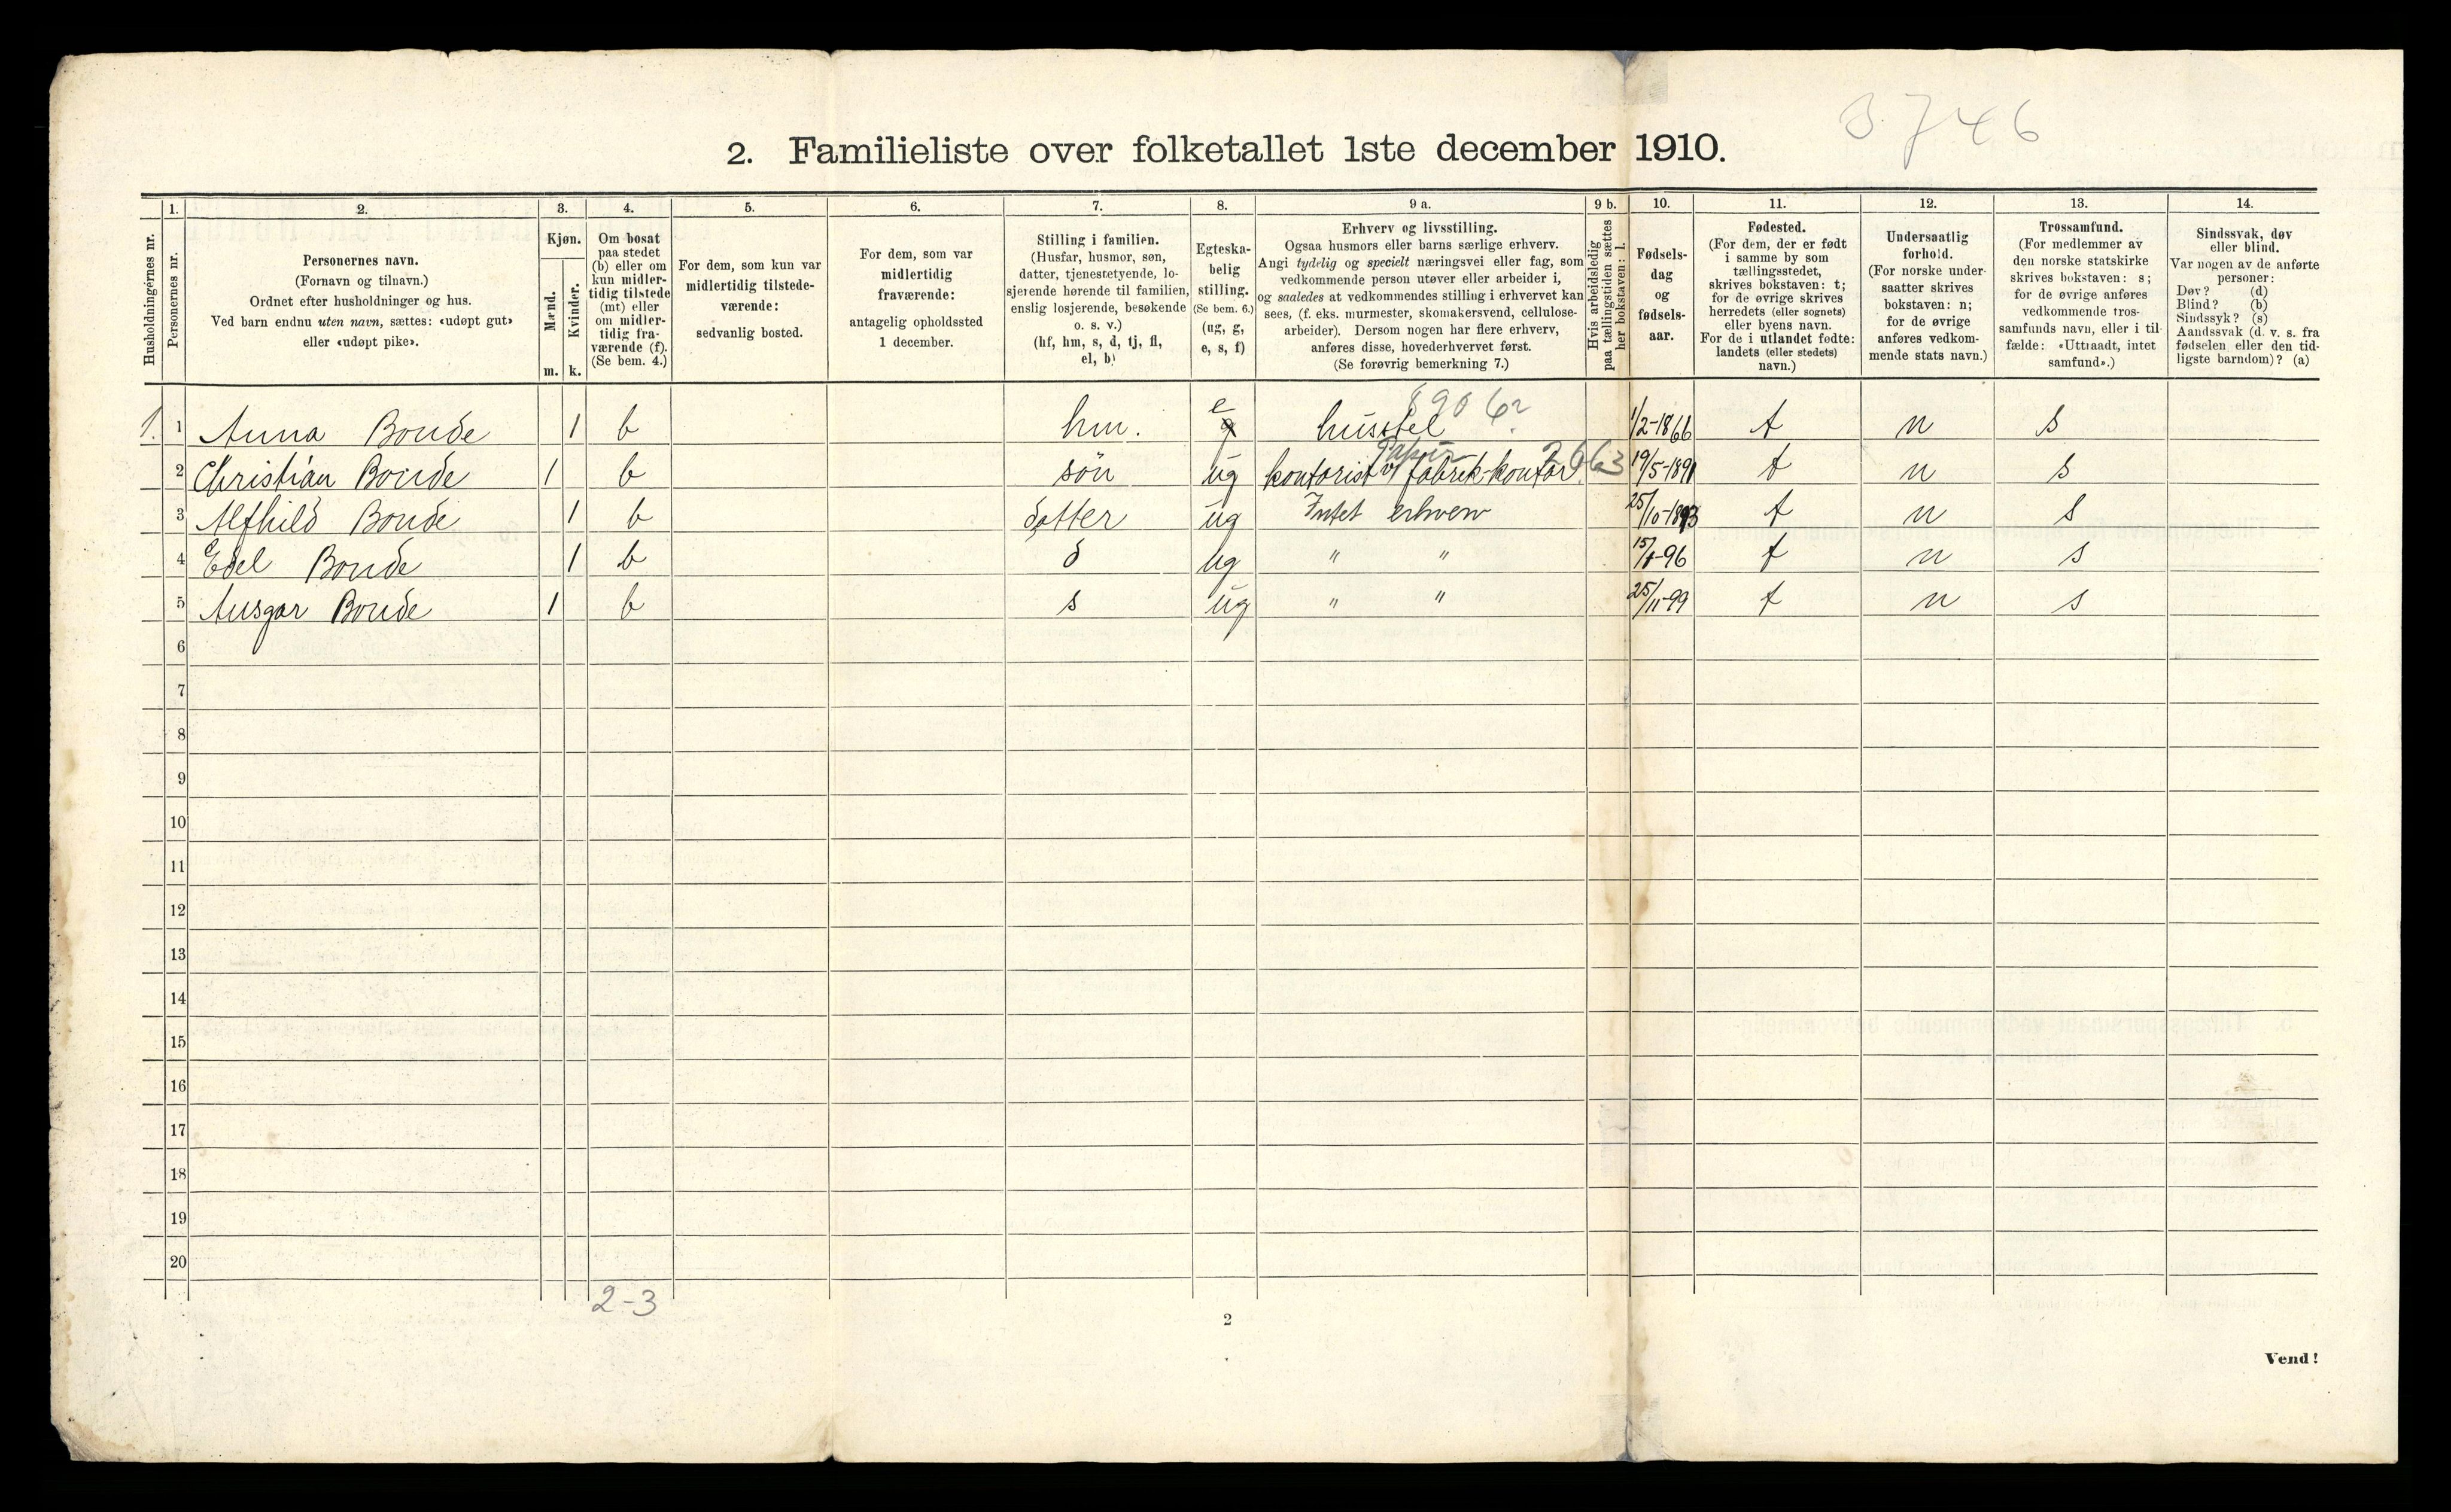 3746
2. Familieliste over folketallet 1ste december 1910.
Husholdningernes nr.
1. Personernes nr.
2. Personernes navn.
(Fornavn og tilnavn.)
Ordnet efter husholdninger og hus.
Ved barn endnu uten navn, sættes: «udøpt gut»
eller «udøpt pike».
3. Kjøn.
Mænd. m.
Kvinder. k.
4. Om bosat
paa stedet
(b) eller om
kun midler-
tidig tilstede
(mt) eller
om midler-
tidig fra-
værende (f).
(Se bem. 4.)
5. For dem, som kun var
midlertidig tilstede-
værende:
sedvanlig bosted.
6. For dem, som var
midlertidig
fraværende:
antagelig opholdssted
1 december.
7. Stilling i familien.
(Husfar, husmor, søn,
datter, tjenestetyende, lo-
sjerende hørende til familien,
enslig losjerende, besøkende
o. s. v.)
(hf, hm, s, d, tj, fl,
el, b)
8. Egteska-
belig
stilling.
(Se bem. 6.)
(ug, g,
e, s, f)
9 a. Erhverv og livsstilling.
Ogsaa husmors eller barns særlige erhverv.
Angi tydelig og specielt næringsvei eller fag, som
vedkommende person utøver eller arbeider i,
og saaledes at vedkommendes stilling i erhvervet kan
sees, (f. eks. murmester, skomakersvend, cellulose-
arbeider). Dersom nogen har flere erhverv,
anføres disse, hovederhvervet først.
(Se forøvrig bemerkning 7.)
9 b. Hvis arbeidsledig
paa tællingstiden sættes
her bokstaven: l.
10. Fødsels-
dag
og
fødsels-
aar.
11. Fødested.
(For dem, der er født
i samme by som
tællingsstedet,
skrives bokstaven: t;
for de øvrige skrives
herredets (eller sognets)
eller byens navn.
For de i utlandet fødte:
landets (eller stedets)
navn.)
12. Undersaatlig
forhold.
(For norske under-
saatter skrives
bokstaven: n;
for de øvrige
anføres vedkom-
mende stats navn.)
13. Trossamfund.
(For medlemmer av
den norske statskirke
skrives bokstaven: s;
for de øvrige anføres
vedkommende tros-
samfunds navn, eller i til-
fælde: «Uttraadt, intet
samfund».)
14. Sindssvak, døv
eller blind.
Var nogen av de anførte
personer:
Døv? (d)
Blind? (b)
Sindssyk? (s)
Aandssvak (d. v. s. fra
fødselen eller den tid-
ligste barndom)? (a)
1. 1 Anna Bonde 1 b hm. e husstel 1/2-1866 t n s
2 Christian Bonde 1 b søn ug kontorist v/ Papir fabrik-kontor. 2663 19/5-1891 t n s
3 Alfhild Bonde 1 b datter ug Intet erhverv 25/10-1893 t n s
4 Edel Bonde 1 b d ug " " 96 t n s
5 Ansgar Bonde 1 b s ug " " 25/11-99 t n s
6
7
8
9
10
11
12
13
14
15
16
17
18
19
20
2-3
2
Vend!